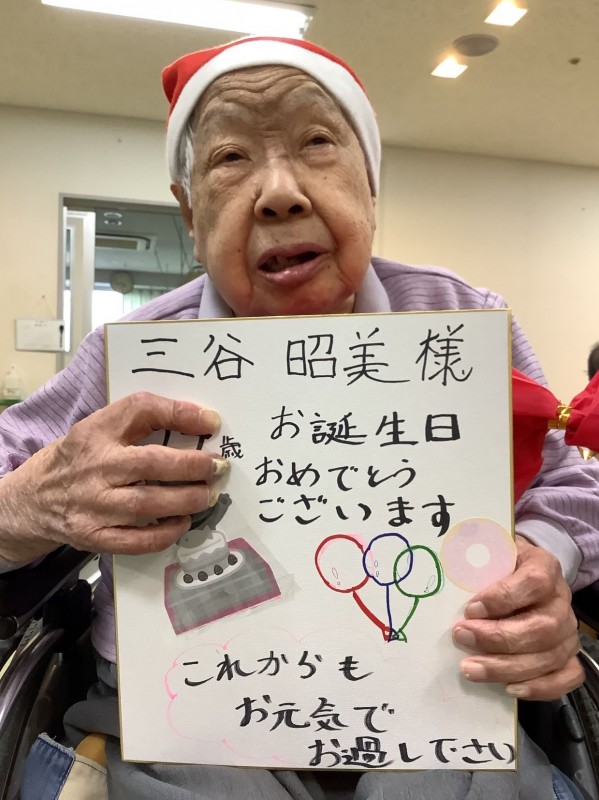 三谷 昭美 様
歳 お誕生日
おめでとう
ございます
これからも
お元気で
お過し下さい